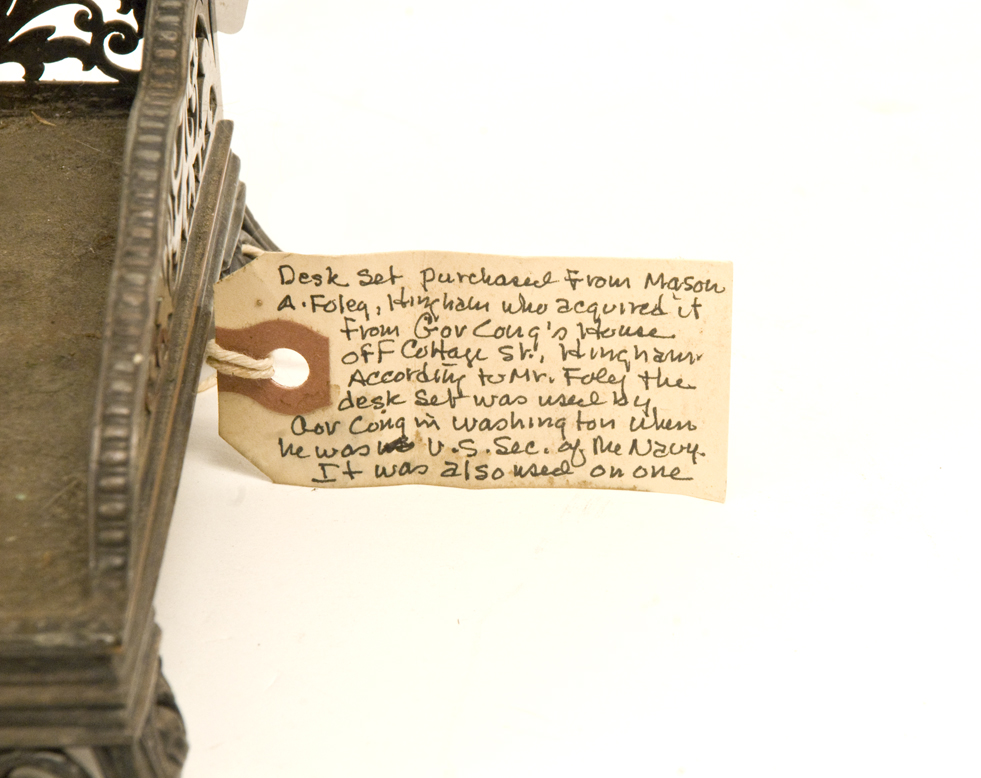 Desk Set purchased From Mason
A. Foley, Hingham who acquired it
From Gov Long's House
off Cottage St., Hingham.
According to Mr. Foley the
desk Set was used by
Gov Long in Washington when
he was U.S. Sec. of the Navy.
It was also used on one